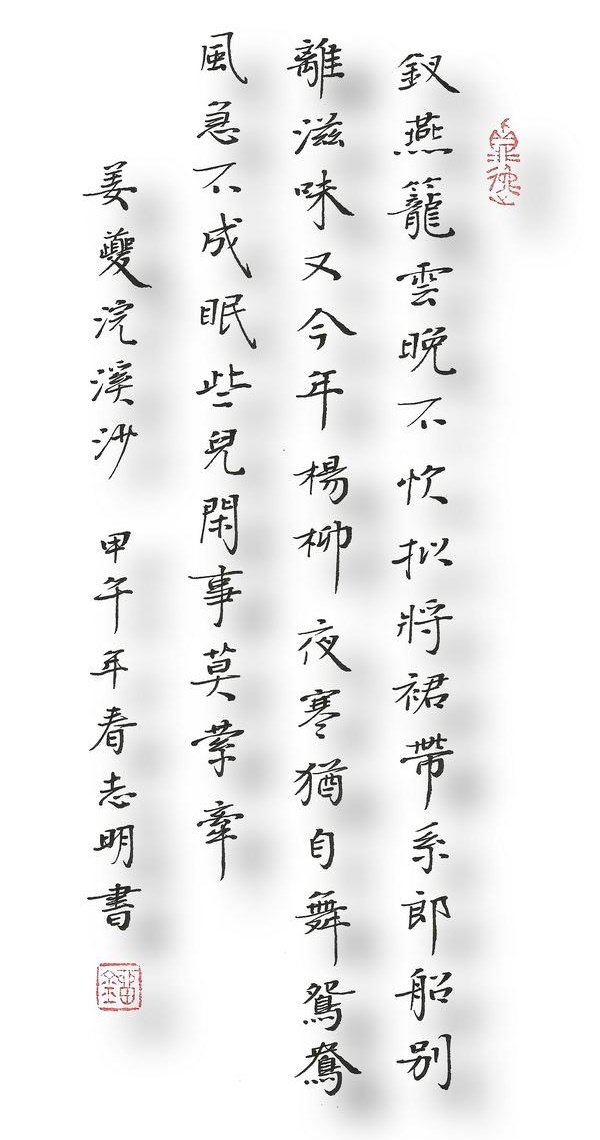 釵燕籠雲晚不忺拟將裙帶系郎船别
離滋味又今年楊柳夜寒猶自舞鴛鴦
風急不成眠些兒閑事莫縈牽
姜夔浣溪沙 甲午年春志明書